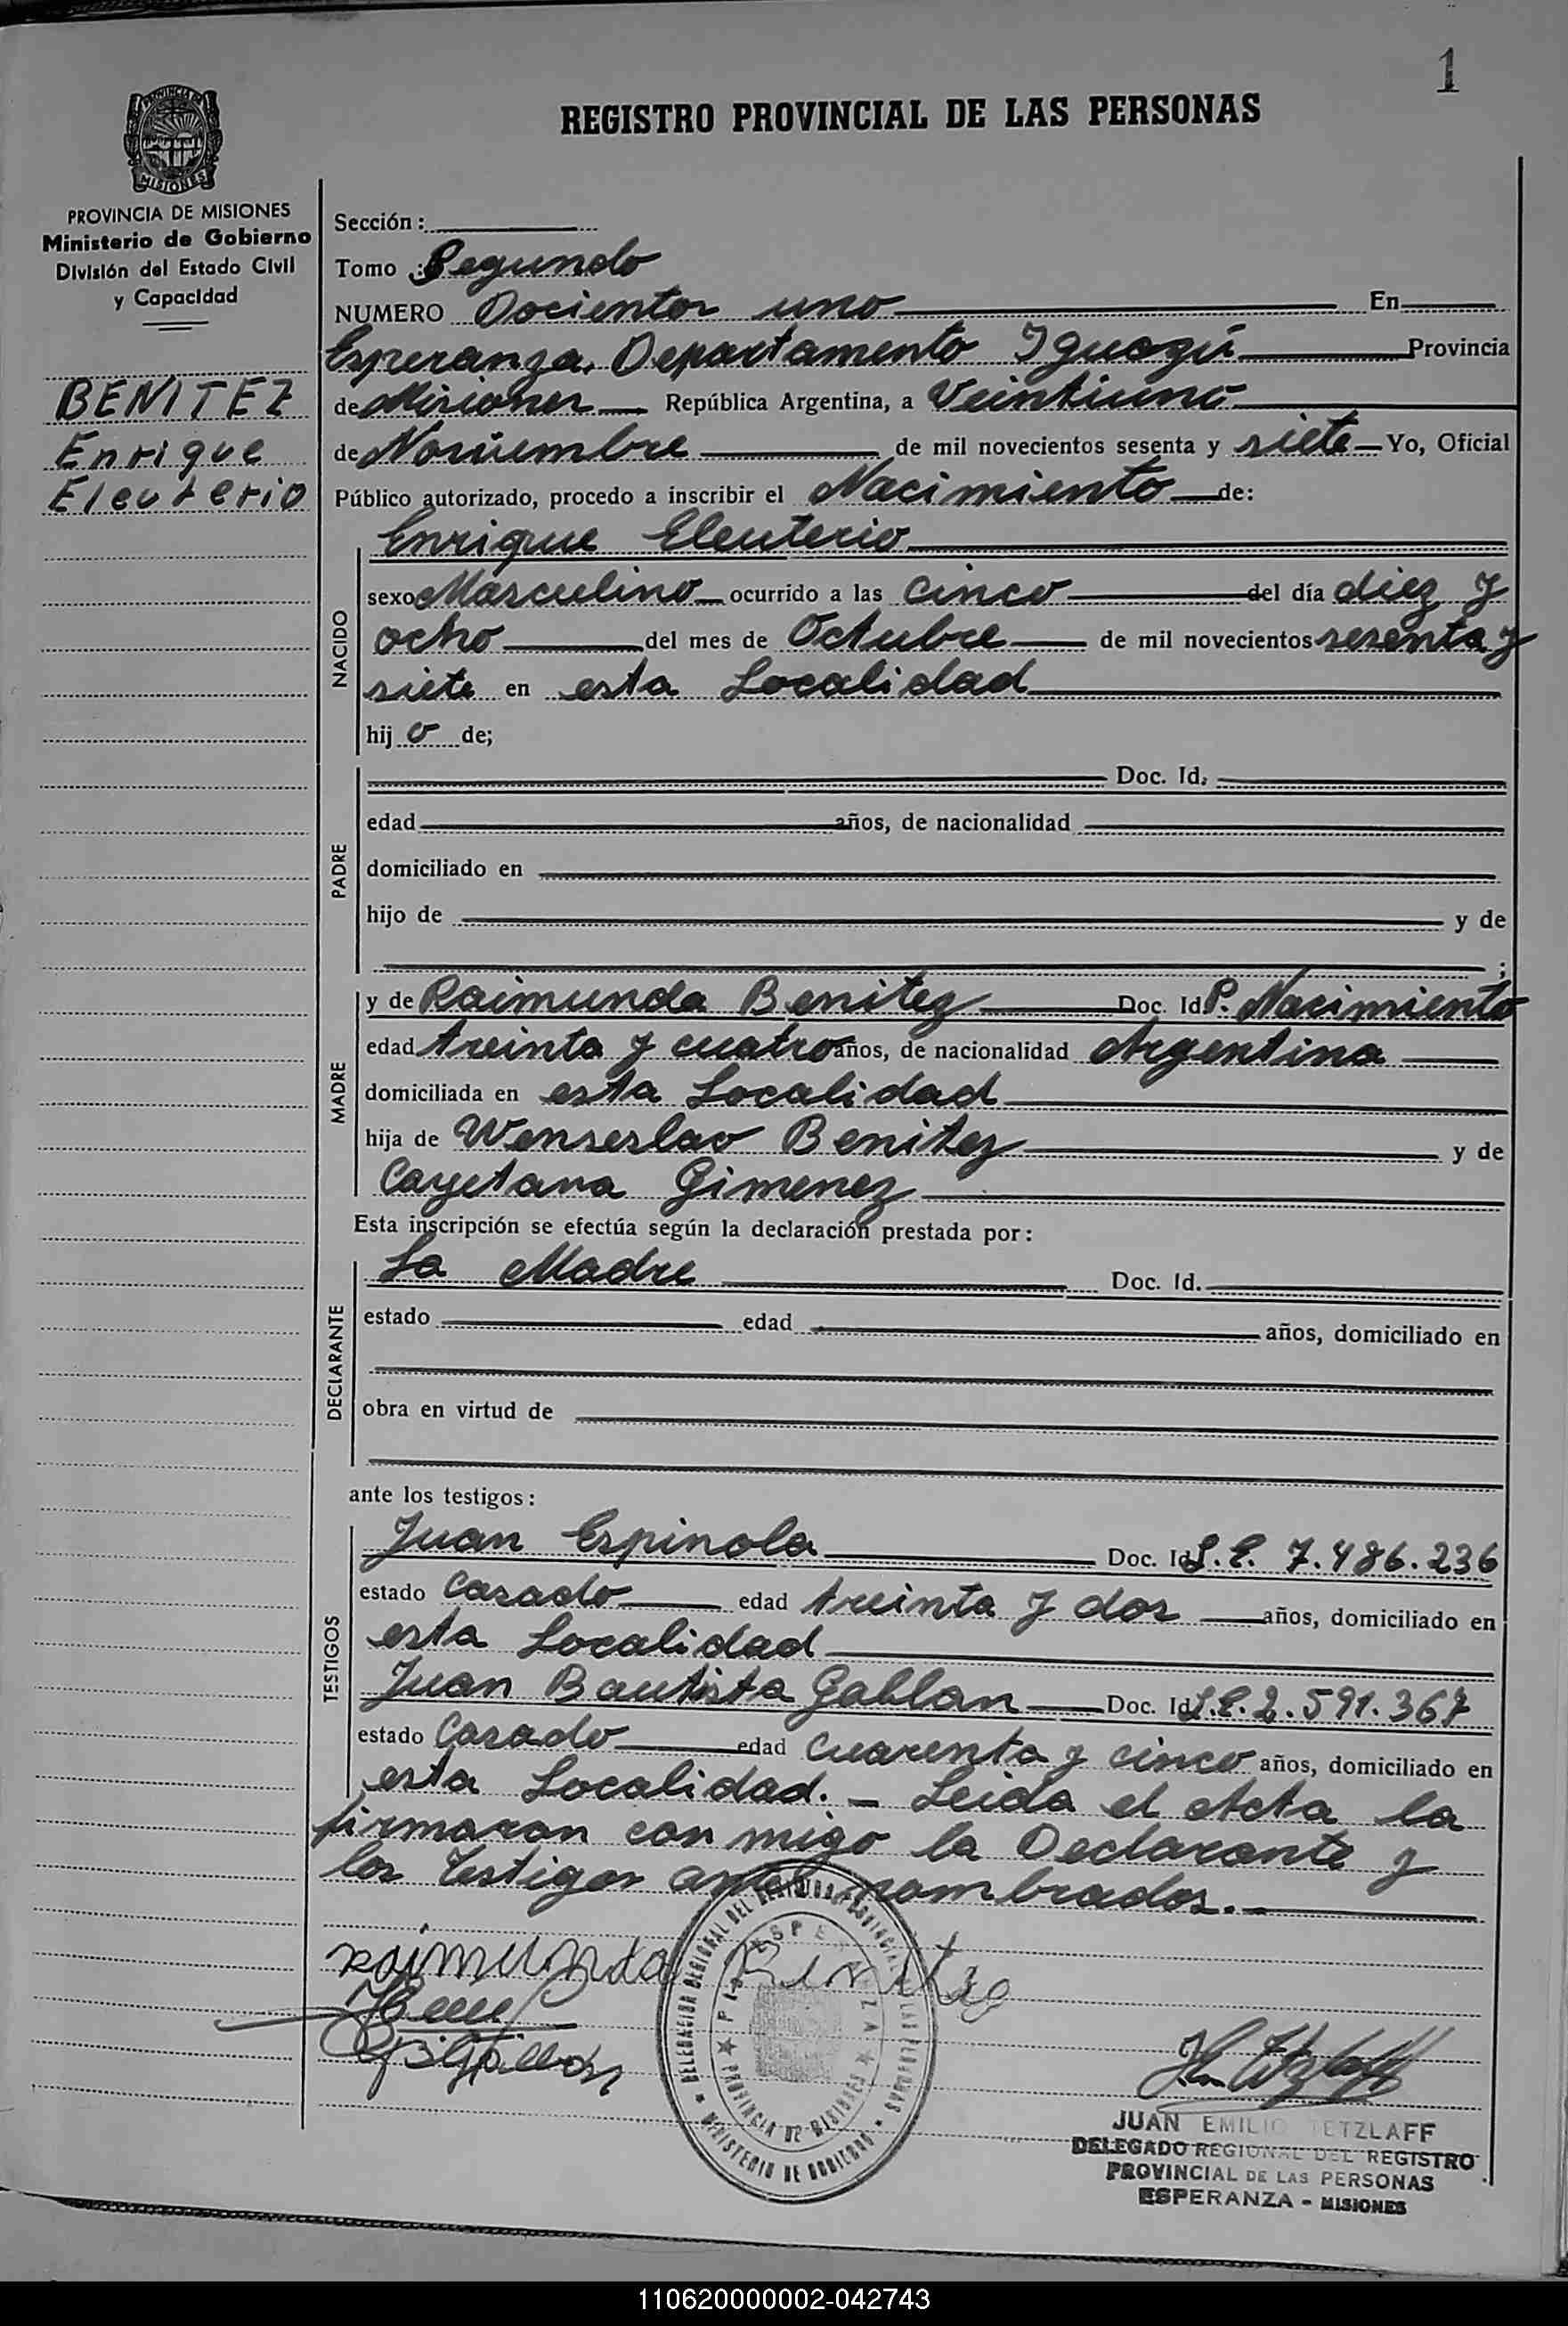 1
REGISTRO PROVINCIAL DE LAS PERSONAS
PROVINCIA DE
MISIONES
PROVINCIA DE MISIONES
Ministerio de Gobierno
División del Estado Civil
y Capacidad
BENITEZ
Enrique
Eleuterio
Sección :
Tomo : Segundo
NUMERO Docientos uno En
Esperanza, Departamento Iguazú Provincia
de Misiones República Argentina, a Veintiuno
de Noviembre de mil novecientos sesenta y siete Yo, Oficial
Público autorizado, procedo a inscribir el Nacimiento de:
NACIDO
Enrique Eleuterio
sexo Masculino ocurrido a las cinco del día diez y
ocho del mes de Octubre de mil novecientos sesenta y
siete en esta Localidad
hij o de;
PADRE
Doc. Id.
edad años, de nacionalidad
domiciliado en
hijo de y de
;
MADRE
y de Raimunda Benitez Doc. Id P. Nacimiento
edad treinta y cuatro años, de nacionalidad Argentina
domiciliada en esta Localidad
hija de Wenseslao Benitez y de
Cayetana Gimenez
Esta inscripción se efectúa según la declaración prestada por:
DECLARANTE
La Madre Doc. Id.
estado edad años, domiciliado en
obra en virtud de
ante los testigos:
TESTIGOS
Juan Espinola Doc. Id L. E. 7.486.236
estado Casado edad treinta y dos años, domiciliado en
esta Localidad
Juan Bautista Gallan Doc. Id L.E. 2.591.367
estado Casado edad cuarenta y cinco años, domiciliado en
esta Localidad. - Leida el Acta la
firmaron con migo la Declarante y
los Testigos antes nombrados. -
Raimunda Benitez
DELEGACION REGIONAL DEL REGISTRO PROVINCIAL DE LAS PERSONAS
ESPERANZA
PROVINCIA DE MISIONES
MINISTERIO DE GOBIERNO
JUAN EMILIO TETZLAFF
DELEGADO REGIONAL DEL REGISTRO
PROVINCIAL DE LAS PERSONAS
ESPERANZA - MISIONES
110620000002-042743